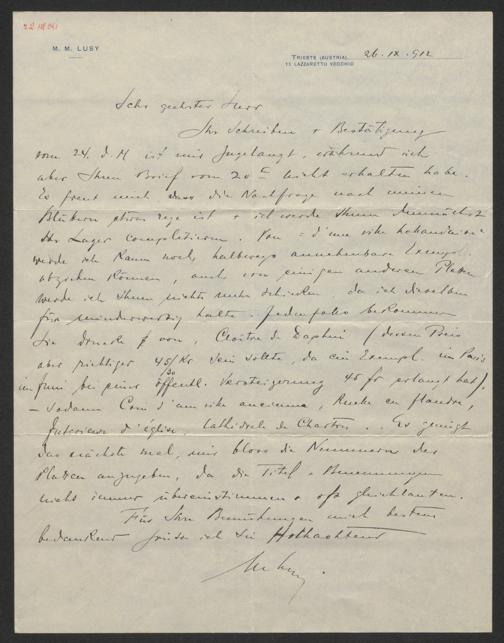 M. M. LUSY
TRIESTE (AUSTRIA) 26. IX. 912
11 LAZZARETTO VECCHIO
Sehr geehrter Herr
Ihr Schreiben + Bestätigung
vom 24. d. M ist mir zugelangt, während ich
aber Ihren Brief vom 20 nicht erhalten habe.
Es freut mich dass die Nachfrage nach meinen
Blättern etwas rege ist + ich werde Ihnen demnächst
Ihr Lager completiren. Von
werde ich kaum noch halbwegs annehmbare Exempl.
abziehen können, auch von einigen anderen Platten
werde ich Ihnen nichts mehr schicken, da ich dieselben
für minderwertig halte. Jedenfalls bekommen
Sie Drucke von, Cloître de Daphni (dessen Preis
aber richtiger 45/Kr sein sollte, da ein Exempl. in Paris
im Juni bei einer öffentl. Versteigerung 45 fr erlangt hat),
– sodann Cour d'antike ancienne, Ruelle en flandre,
Interieur d'église, Cathédrale de Chartres.. Es genügt
das nächste mal, mir bloss die Nummern der
Platten anzugeben, da die Titel + Benennungen
nicht immer übereinstimmen + oft gleichlauten.
Für Ihre Bemühungen mich bestens
bedankend grüsse ich Sie Hochachtend
M Lusy.